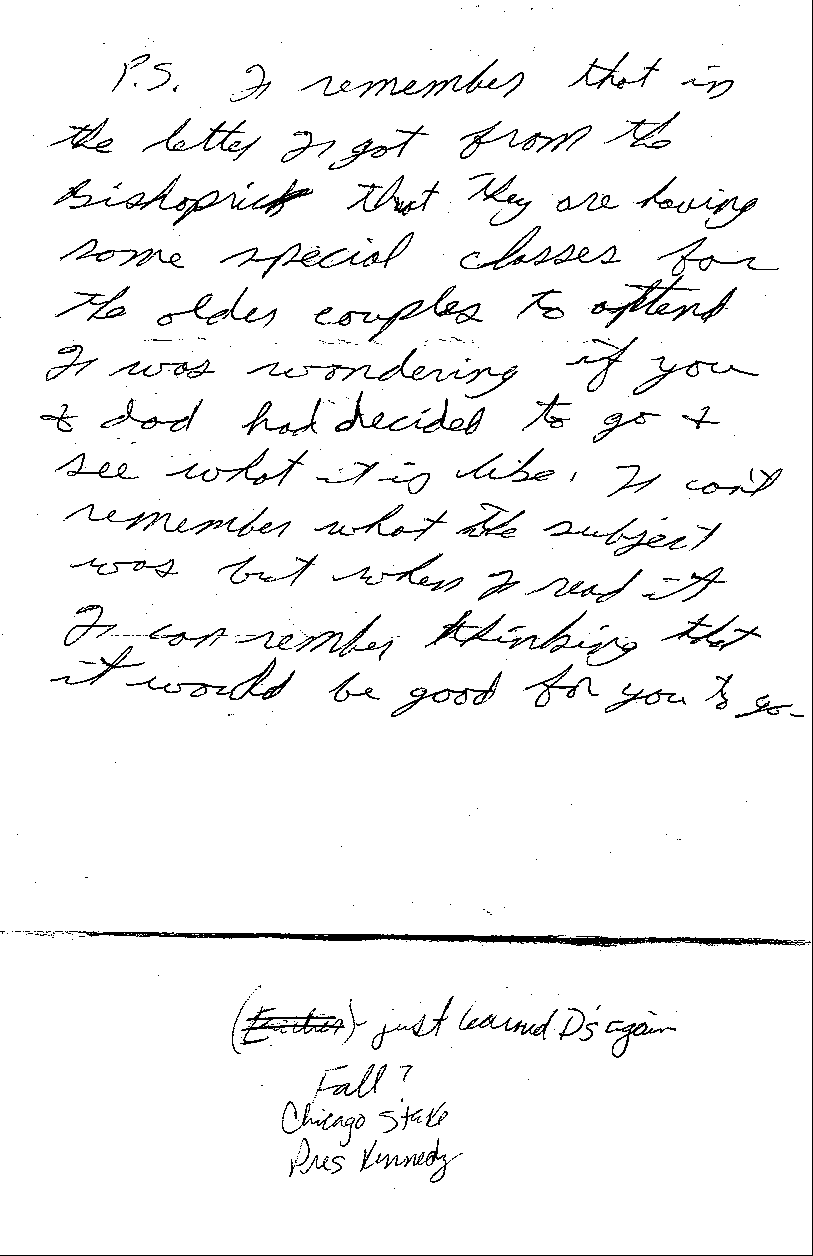 P.S. I remember that in
the letter I got from the
Bishoprick that they are having
some special classes for
the older couples to attend
I was wondering if you
& dad had decided to go &
see what it is like. I can't
remember what the subject
was but when I read it
I can rember thinking that
it would be good for you to go
( ) just learned D's again
Fall ?
Chicago Stake
Pres Kennedy